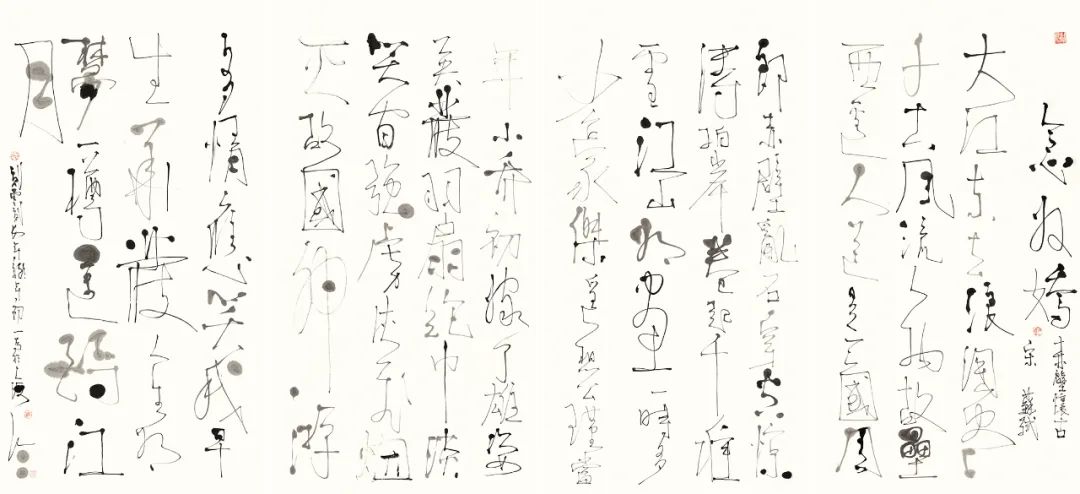 念奴嬌
赤壁懷古
宋 蘇軾
大江東去浪淘盡
千古風流人物故壘
西邊人道是三國周
郎赤壁亂石穿空驚
濤拍岸卷起千堆
雪江山如畫一時多
少豪傑遙想公瑾當
年小喬初嫁了雄姿
英發羽扇綸巾談
笑間強虜灰飛煙
滅故國神游
多情應笑我早
生華發人生如
夢一樽還酹江
月